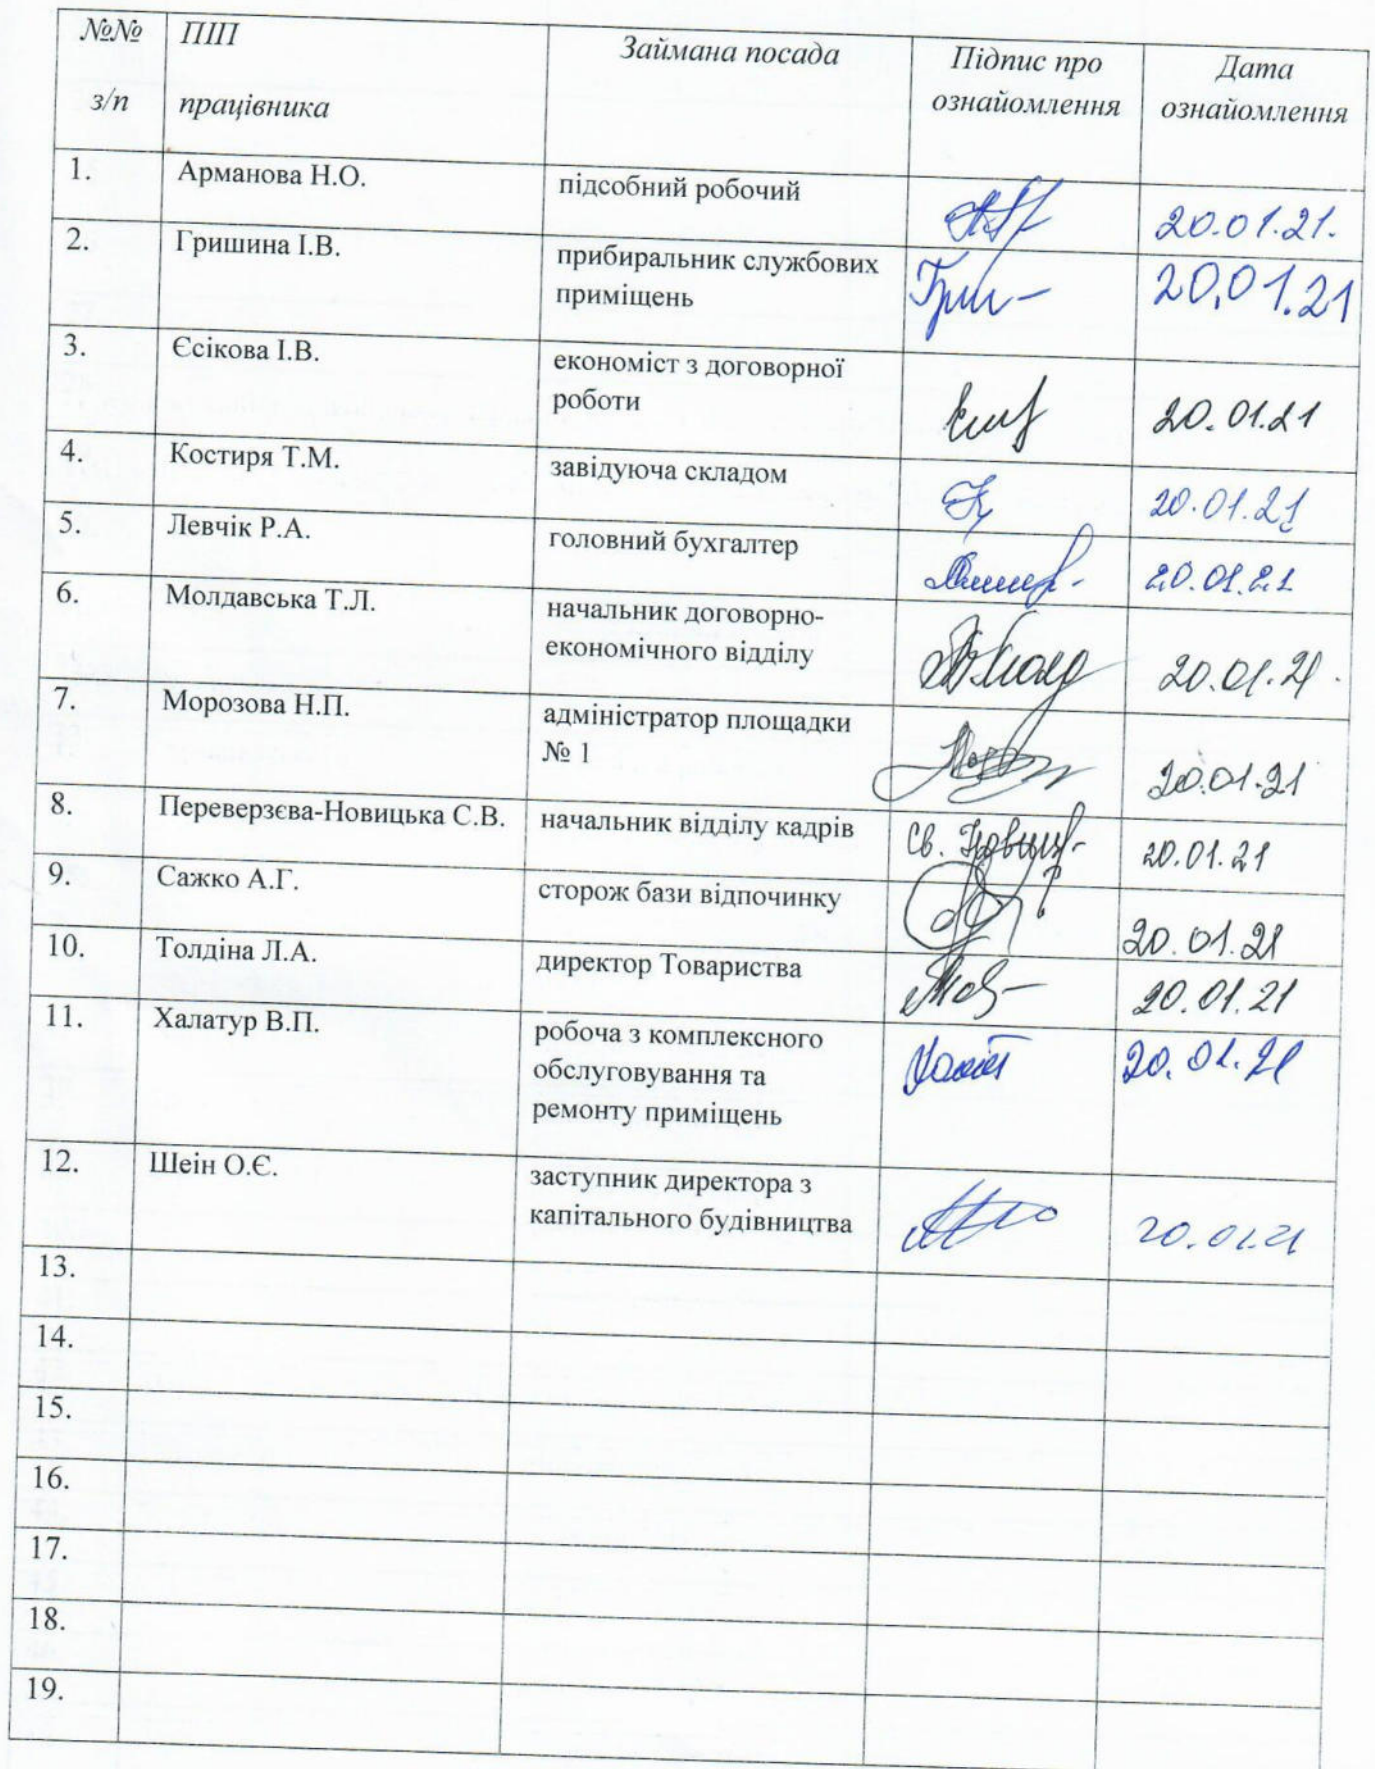 №№ ПІП Займана посада Підпис про Дата
з/п працівника ознайомлення ознайомлення
1. Арманова Н.О. підсобний робочий 20.01.21.
2. Гришина І.В. прибиральник службових Гри- 20,01.21
приміщень
3. Єсікова І.В. економіст з договорної
роботи 20.01.21
4. Костиря Т.М. завідуюча складом 20.01.21
5. Левчік Р.А. головний бухгалтер 20.01.21
6. Молдавська Т.Л. начальник договорно-
економічного відділу 20.01.21.
7. Морозова Н.П. адміністратор площадки
№ 1 20.01.21
8. Переверзєва-Новицька С.В. начальник відділу кадрів 20.01.21
9. Сажко А.Г. сторож бази відпочинку 20.01.21
10. Толдіна Л.А. директор Товариства 20.01.21
11. Халатур В.П. робоча з комплексного 20.01.21
обслуговування та
ремонту приміщень
12. Шеін О.Є. заступник директора з
капітального будівництва 20.01.21
13.
14.
15.
16.
17.
18.
19.